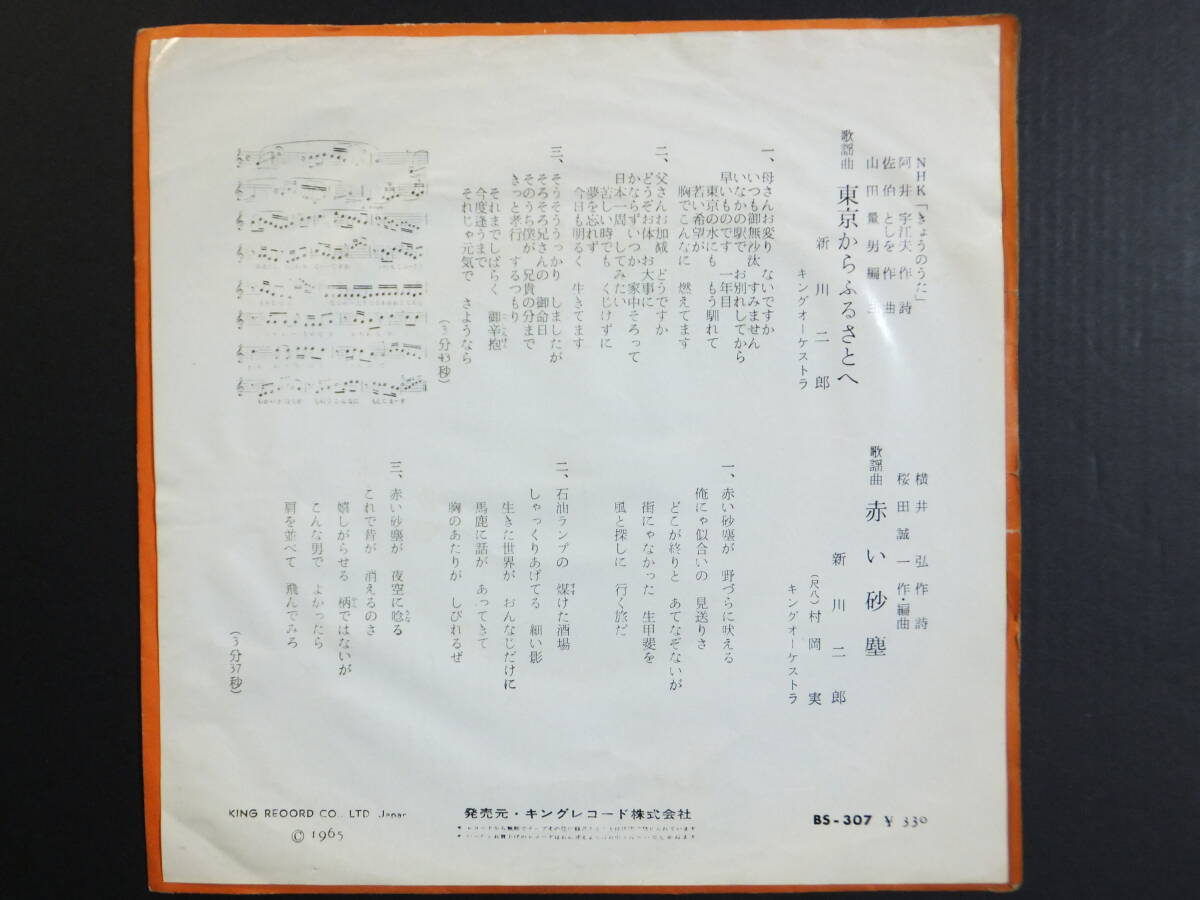 NHK「きょうのうた」
阿井宇江夫 作詩
佐伯としを 作曲
山田量男 編曲
歌謡曲 東京からふるさとへ
新川二郎
キングオーケストラ
一、母さんお変り ないですか
いつも御無沙汰 すみません
いなかの駅で お別れしてから
早いものです 一年目
東京の水にも もう馴れて
若い希望が
胸でこんなに 燃えてます
二、父さんお加減 どうですか
どうぞお体 お大事に
かならずいつか 家中そろって
日本一周 してみたい
苦しい時でも くじけずに
夢を忘れず
今日も明るく 生きてます
三、そうそううっかり しましたが
そろそろ兄さんの 御命日
そのうち僕が 兄貴の分まで
きっと孝行 するつもり
それまでしばらく 御辛抱
今度逢うまで
それじゃ元気で さようなら
(3分43秒)
横井弘 作詩
桜田誠一 作・編曲
歌謡曲 赤い砂塵
新川二郎
(尺八)村岡実
キングオーケストラ
一、赤い砂塵が 野づらに吠える
俺にゃ似合いの 見送りさ
どこが終りと あてなぞないが
街にゃなかった 生甲斐を
風と探しに 行く旅だ
二、石油ランプの 煤けた酒場
しゃっくりあげてる 細い影
生きた世界が おんなじだけに
馬鹿に話が あってきて
胸のあたりが しびれるぜ
三、赤い砂塵が 夜空に唸る
これで昔が 消えるのさ
嬉しがらせる 柄ではないが
こんな男で よかったら
肩を並べて 飛んでみろ
(3分37秒)
KING RECORD CO., LTD Japan
© 1965
発売元・キングレコード株式会社
BS-307 ¥330